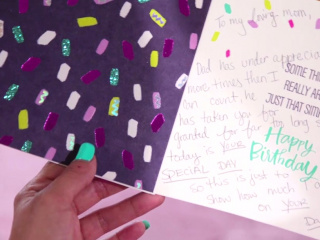 To my loving mom,
Dad has under apprecia
most times than I
can count, he
has taken you for
granted for far to long s
today is YOUR
SPECIAL DAY
so this is just to
show how much
on YOUR
Da
SOME THIN
REALLY AR
JUST THAT SIM
Happy
Birthday